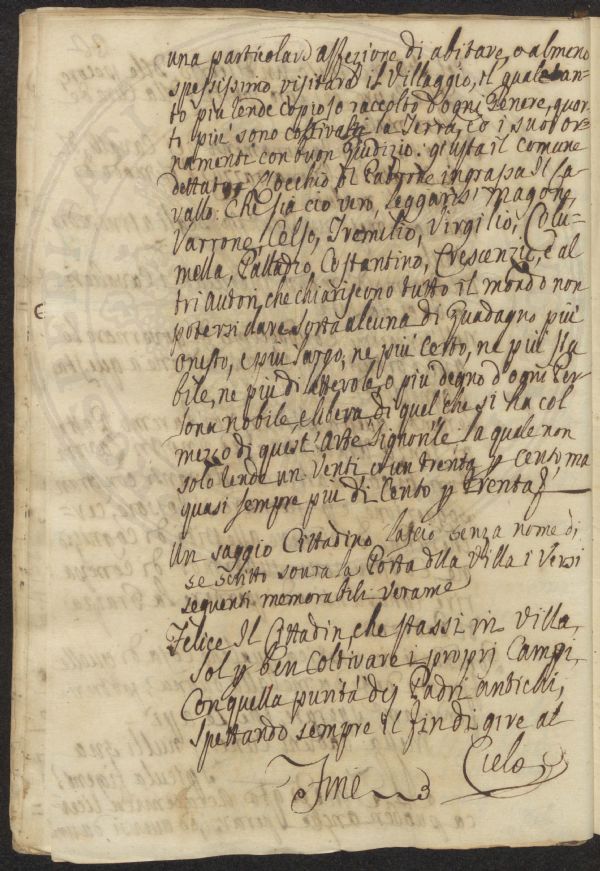 una particolare affezione di abitare, o almeno
spessissimo visitare il Villaggio, il quale tan-
to più rende copioso raccolto d'ogni Genere, quan-
ti più sono coltivate la Terra, co i suoi or-
namenti con buon Giudizio: giusta il comune
dettato L'occhio del Padrone ingrassa il Ca-
vallo. Che sia ciò vero, leggansi Magone,
Varrone, Celso, Tremilio, Virgilio, Colu-
mella, Palladio, Costantino, Crescenzio, e al
tri Autori, che chiariscono tutto il mondo non
potersi dare sorta alcuna di Guadagno più
onesto, e più largo, ne più certo, ne più sta
bile, ne più dilettevole, o più degno d'ogni Per
sona nobile, e libera, di quel che si ha col
mezzo di quest'Arte Signorile la quale non
solo rende un Venti o un trenta p cento, ma
quasi sempre più di Cento p trenta
Un saggio Cittadino lasciò senza nome di
se scritto sovra la Porta dlla Villa i Versi
seguenti memorabili verame
Felice Il Cittadin, che stassi in Villa,
Sol p ben Coltivare i proprj Campi,
Con quella purità dej Padri antichi,
Spettando sempre il fin di gire al
Cielo
Fine